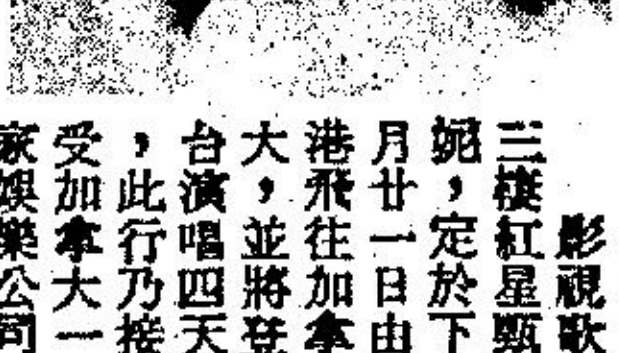 影視歌
三棲紅星甄
妮，定於下
月廿一日由
港飛往加拿
大，並將登
台演唱四天
，此行乃接
受加拿大一
家娛樂公司